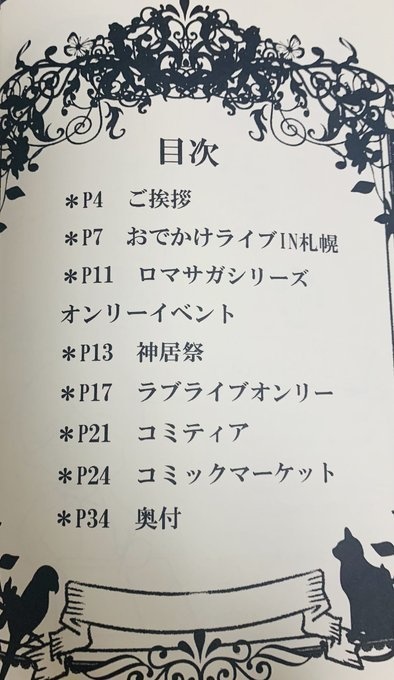 目次
＊P4　ご挨拶
＊P7　おでかけライブIN札幌
＊P11　ロマサガシリーズ
オンリーイベント
＊P13　神居祭
＊P17　ラブライブオンリー
＊P21　コミティア
＊P24　コミックマーケット
＊P34　奥付